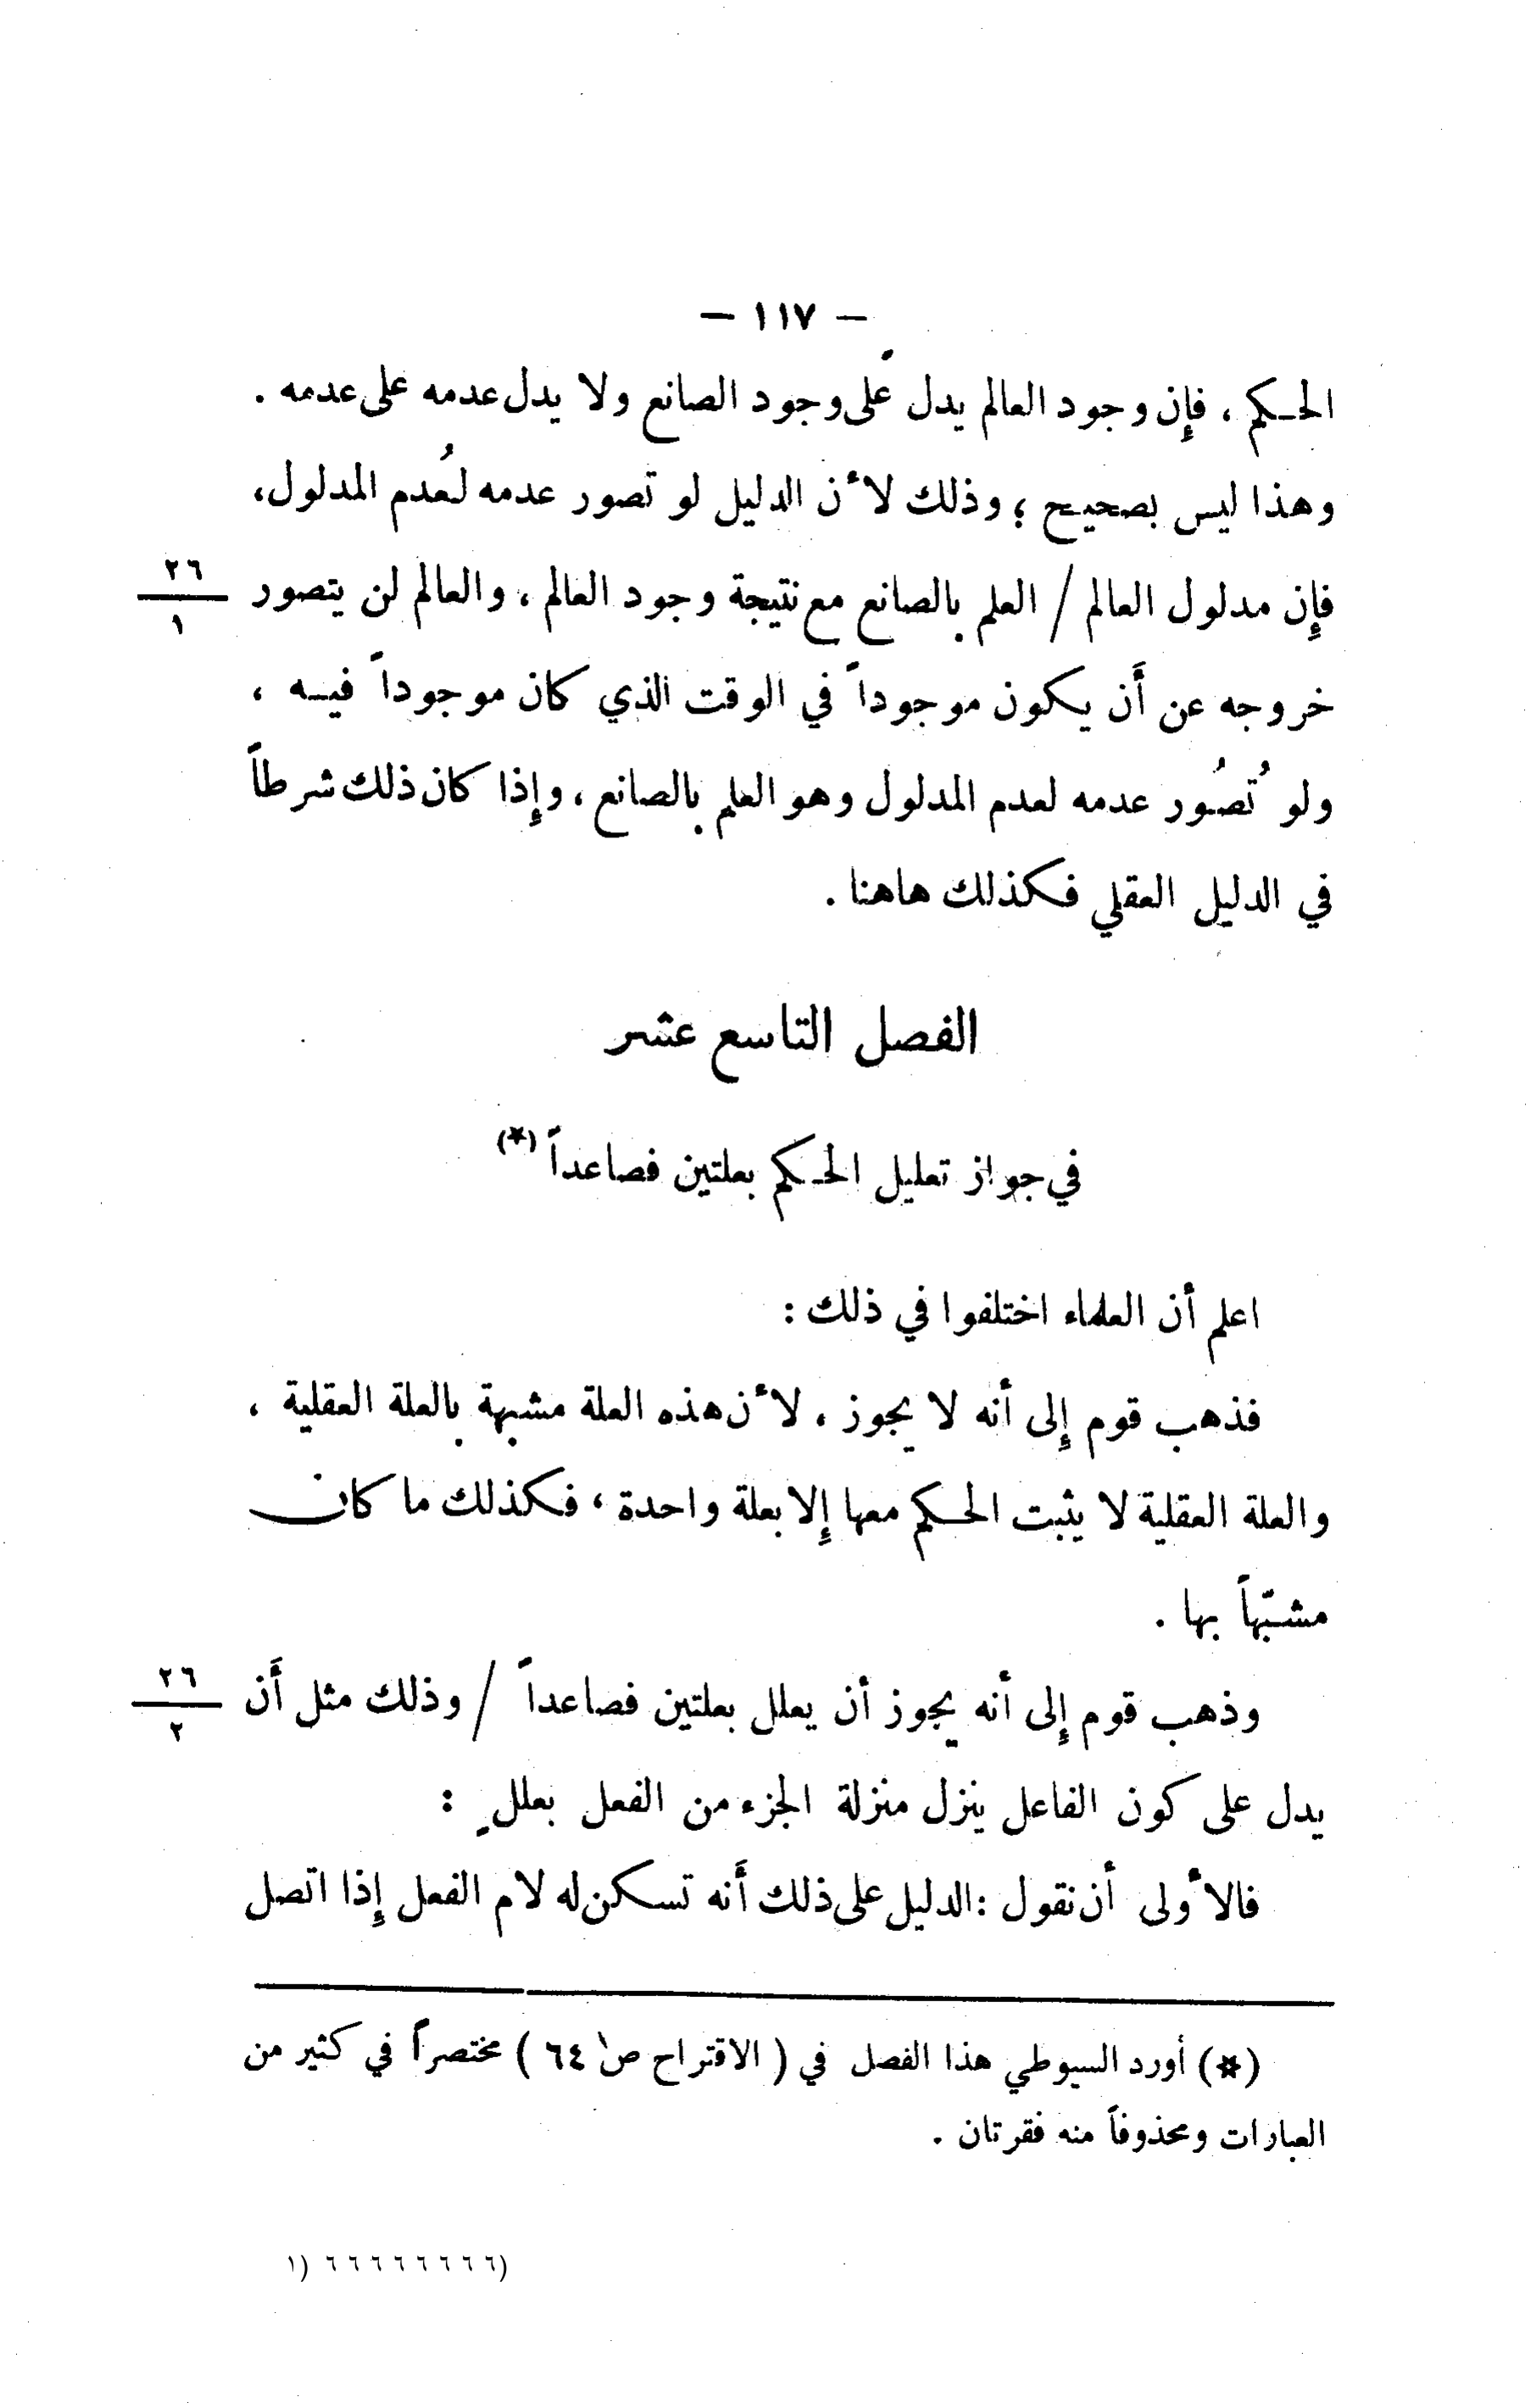 — ١١٧ —
الحكم ، فإن وجود العالم يدل على وجود الصانع ولا يدل عدمه على عدمه .
وهذا ليس بصحيح ؛ وذلك لأن الدليل لو تصور عدمه لعُدم المدلول،
فإن مدلول العالم / العلم بالصانع مع نتيجة وجود العالم ، والعالم لن يتصور
٢٦
١
خروجه عن أَن يكون موجوداً في الوقت الذي كان موجوداً فيه ،
ولو تُصُور عدمه لعدم المدلول وهو العلم بالصانع ، وإذا كان ذلك شرطاً
في الدليل العقلي فكذلك هاهنا .
الفصل التاسع عشر
في جواز تعليل الحكم بعلتين فصاعداً (*)
اعلم أن العلماء اختلفوا في ذلك :
فذهب قوم إلى أنه لا يجوز ، لأن هذه العلة مشبهة بالعلة العقلية ،
والعلة العقلية لا يثبت الحكم معها إلا بعلة واحدة ، فكذلك ما كان
مشبّهاً بها .
وذهب قوم إلى أنه يجوز أن يعلل بعلتين فصاعداً / وذلك مثل أَن
٢٦
٢
يدل على كون الفاعل ينزل منزلة الجزء من الفعل بعلل :
فالأولى أن نقول : الدليل على ذلك أَنه تسكن له لام الفعل إذا اتصل
(*) أورد السيوطي هذا الفصل في ( الاقتراح ص ٦٤ ) مختصراً في كثير من
العبارات ومحذوفاً منه فقرتان .
١) ٦ ٦ ٦ ٦ ٦ ٦ ٦ ٦)